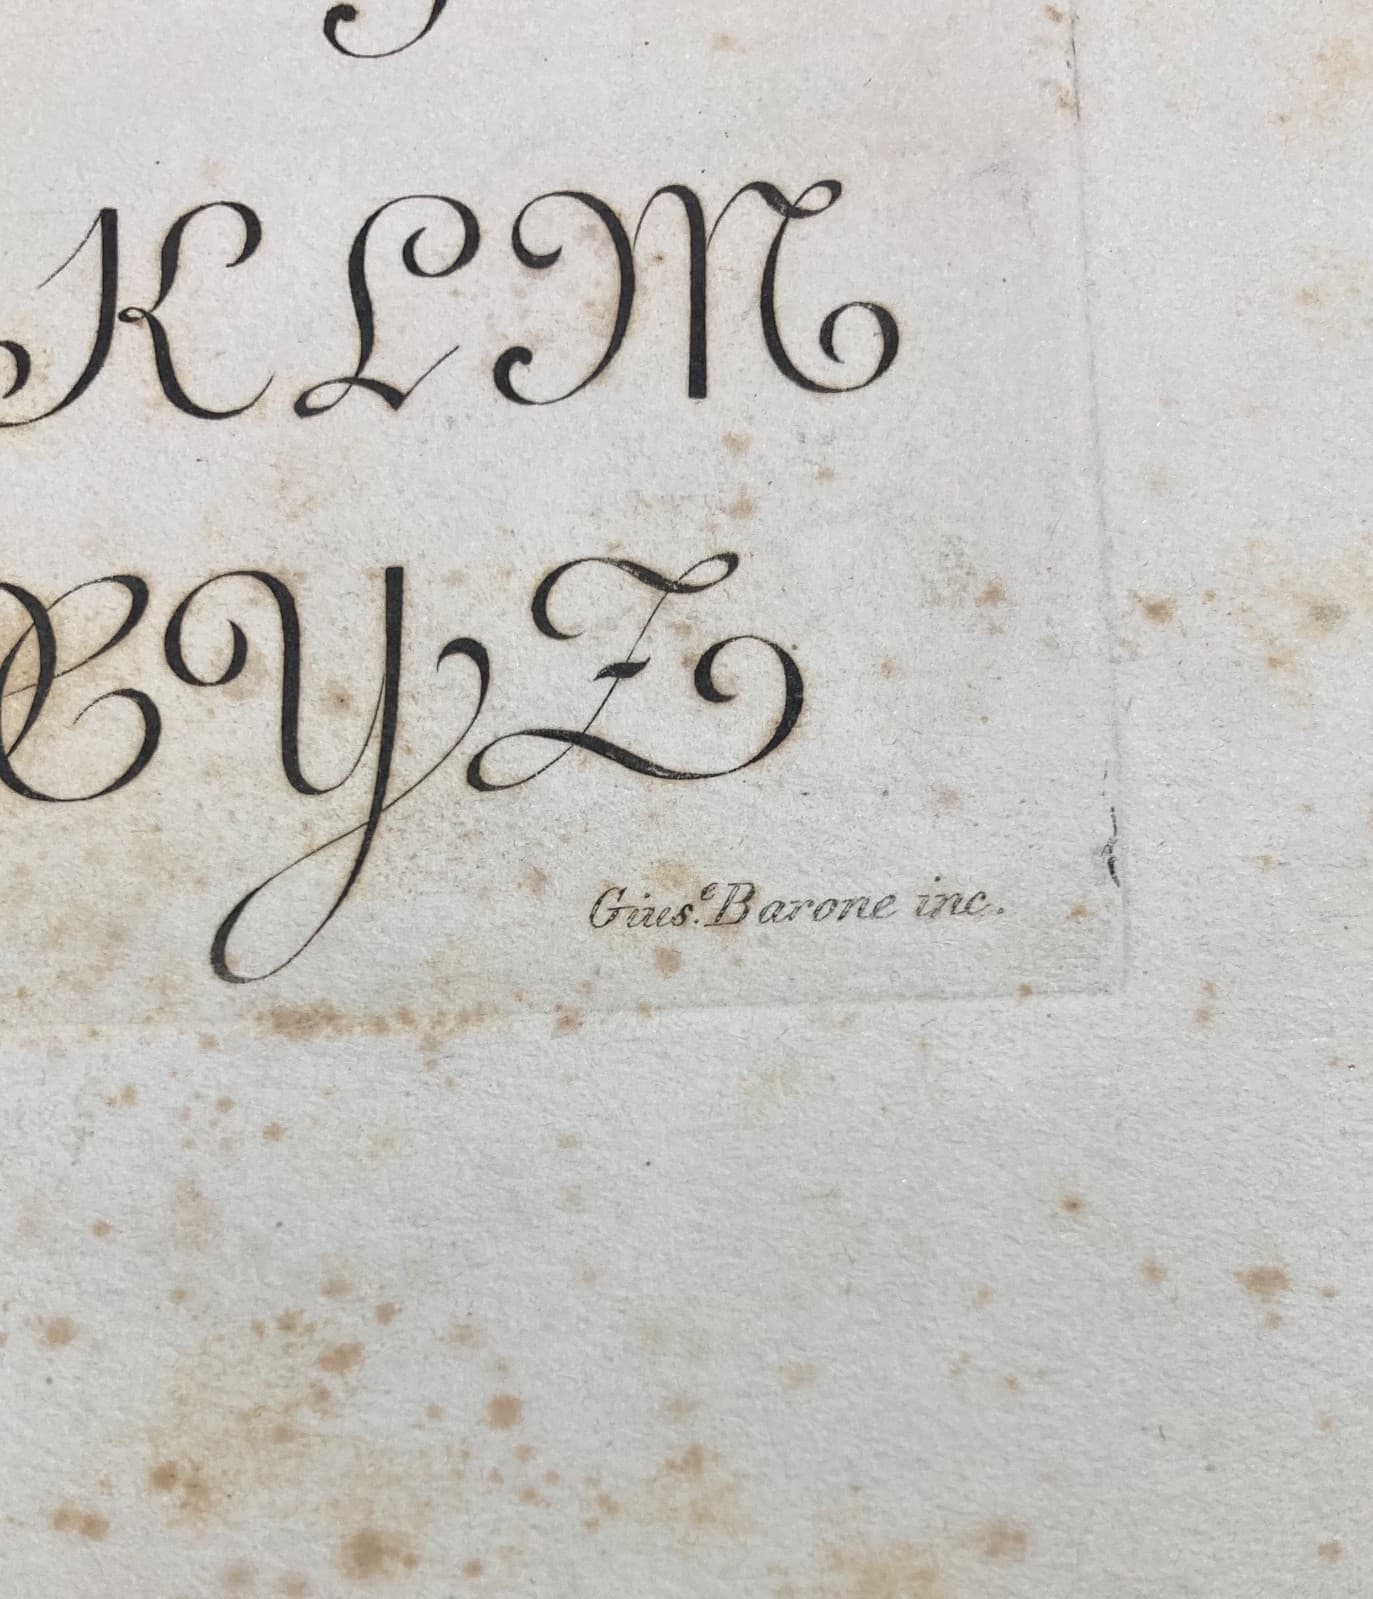 K L M
X Y Z
Gius.e Barone inc.